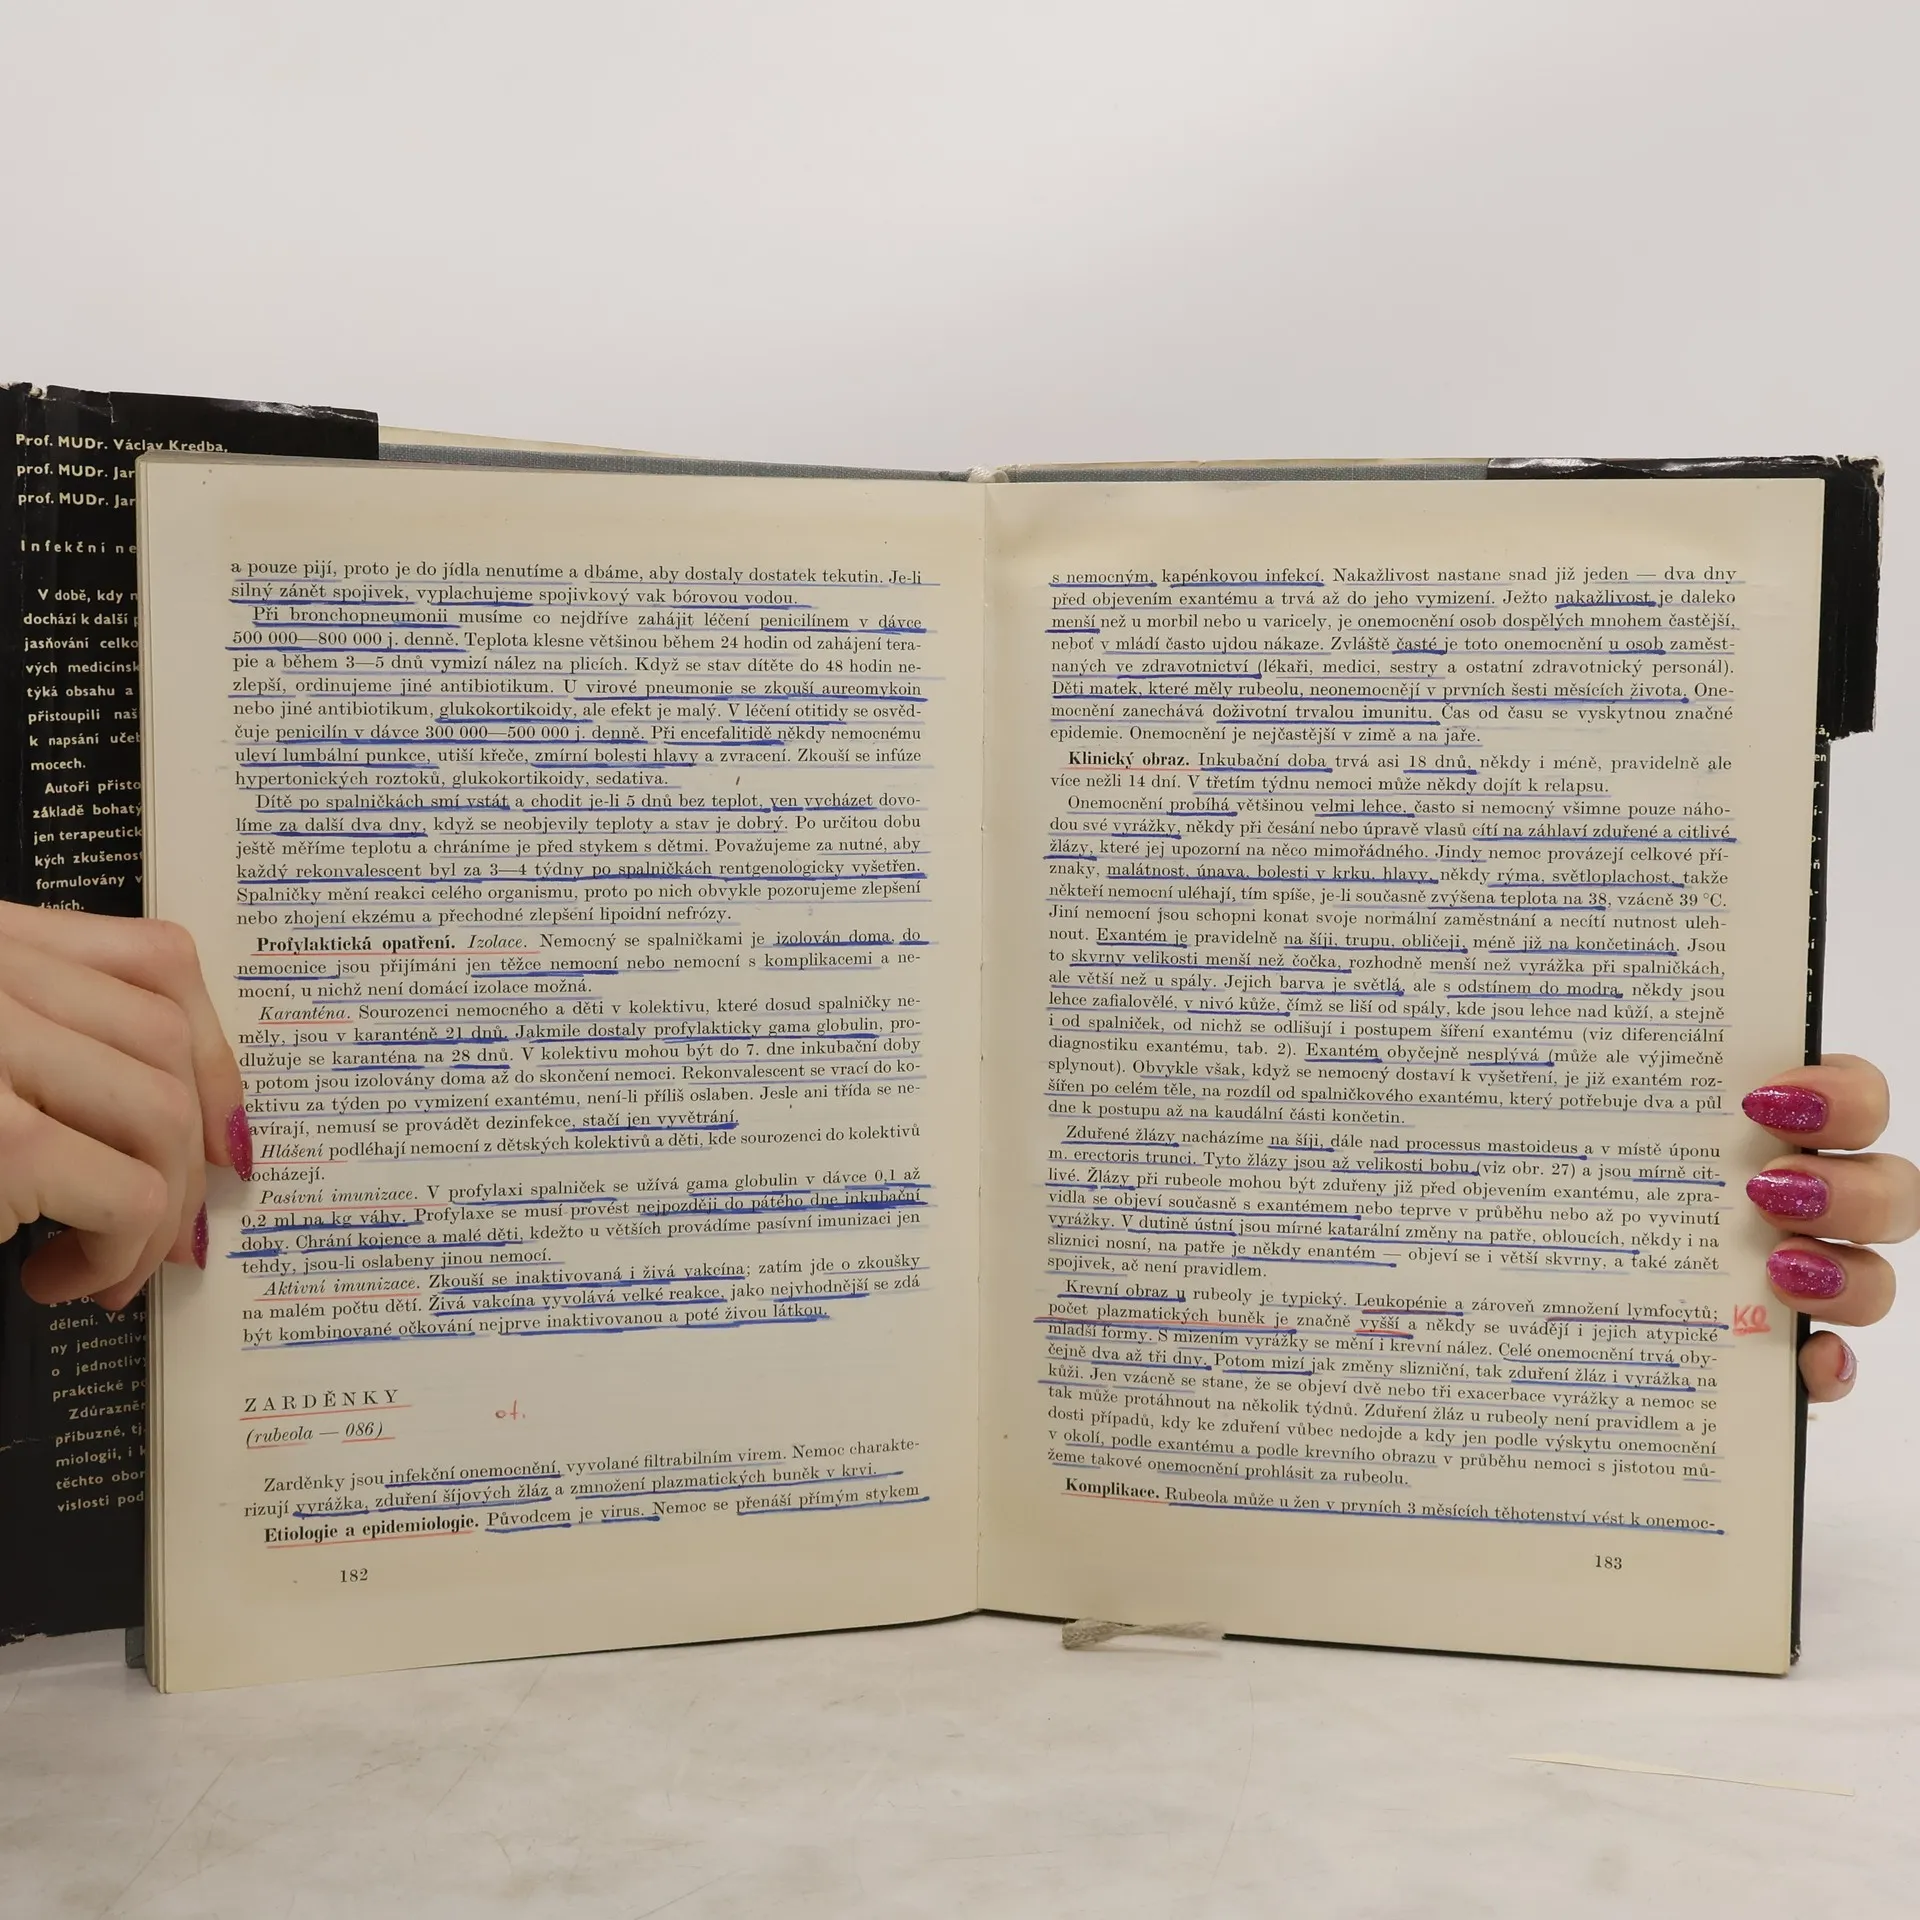 Prof. MUDr. Václav Kredba,
prof. MUDr. Jar
prof. MUDr. Jar
Infekční ne
V době, kdy n
dochází k další p
jasňování celko
vých medicínsk
týká obsahu a
přistoupili naš
k napsání učeb
mocech.
Autoři přisto
základě bohatý
jen terapeutick
kých zkušenost
formulovány v
dáních.
dělení. Ve sp
ny jednotlive
o jednotlivý
praktické po
Zdůrazněn
příbuzné, tj.
miologii, i k
těchto obor
vislosti pod
a pouze pijí, proto je do jídla nenutíme a dbáme, aby dostaly dostatek tekutin. Je-li
silný zánět spojivek, vyplachujeme spojivkový vak bórovou vodou.
Při bronchopneumonii musíme co nejdříve zahájit léčení penicilínem v dávce
500 000—800 000 j. denně. Teplota klesne většinou během 24 hodin od zahájení tera-
pie a během 3—5 dnů vymizí nález na plicích. Když se stav dítěte do 48 hodin ne-
zlepší, ordinujeme jiné antibiotikum. U virové pneumonie se zkouší aureomykoin
nebo jiné antibiotikum, glukokortikoidy, ale efekt je malý. V léčení otitidy se osvěd-
čuje penicilín v dávce 300 000—500 000 j. denně. Při encefalitidě někdy nemocnému
uleví lumbální punkce, utiší křeče, zmírní bolesti hlavy a zvracení. Zkouší se infúze
hypertonických roztoků, glukokortikoidy, sedativa.
Dítě po spalničkách smí vstát a chodit je-li 5 dnů bez teplot, ven vycházet dovo-
líme za další dva dny, když se neobjevily teploty a stav je dobrý. Po určitou dobu
ještě měříme teplotu a chráníme je před stykem s dětmi. Považujeme za nutné, aby
každý rekonvalescent byl za 3—4 týdny po spalničkách rentgenologicky vyšetřen.
Spalničky mění reakci celého organismu, proto po nich obvykle pozorujeme zlepšení
nebo zhojení ekzému a přechodné zlepšení lipoidní nefrózy.
Profylaktická opatření. Izolace. Nemocný se spalničkami je izolován doma, do
nemocnice jsou přijímáni jen těžce nemocní nebo nemocní s komplikacemi a ne-
mocní, u nichž není domácí izolace možná.
Karanténa. Sourozenci nemocného a děti v kolektivu, které dosud spalničky ne-
měly, jsou v karanténě 21 dnů. Jakmile dostaly profylakticky gama globulin, pro-
dlužuje se karanténa na 28 dnů. V kolektivu mohou být do 7. dne inkubační doby
a potom jsou izolovány doma až do skončení nemoci. Rekonvalescent se vrací do ko-
ektivu za týden po vymizení exantému, není-li příliš oslaben. Jesle ani třída se ne-
avírají, nemusí se provádět dezinfekce, stačí jen vyvětrání.
Hlášení podléhají nemocní z dětských kolektivů a děti, kde sourozenci do kolektivů
ocházejí.
Pasívní imunizace. V profylaxi spalniček se užívá gama globulin v dávce 0,1 až
0,2 ml na kg váhy. Profylaxe se musí provést nejpozději do pátého dne inkubační
doby. Chrání kojence a malé děti, kdežto u větších provádíme pasívní imunizaci jen
tehdy, jsou-li oslabeny jinou nemocí.
Aktivní imunizace. Zkouší se inaktivovaná i živá vakcína; zatím jde o zkoušky
na malém počtu dětí. Živá vakcína vyvolává velké reakce, jako nejvhodnější se zdá
být kombinované očkování nejprve inaktivovanou a poté živou látkou.
ZARDĚNKY
ot.
(rubeola — 086)
Zarděnky jsou infekční onemocnění, vyvolané filtrabilním virem. Nemoc charakte-
rizují vyrážka, zduření šíjových žláz a zmnožení plazmatických buněk v krvi.
Etiologie a epidemiologie. Původcem je virus. Nemoc se přenáší přímým stykem
182
s nemocným, kapénkovou infekcí. Nakažlivost nastane snad již jeden — dva dny
před objevením exantému a trvá až do jeho vymizení. Ježto nakažlivost je daleko
menší než u morbil nebo u varicely, je onemocnění osob dospělých mnohem častější,
neboť v mládí často ujdou nákaze. Zvláště časté je toto onemocnění u osob zaměst-
naných ve zdravotnictví (lékaři, medici, sestry a ostatní zdravotnický personál).
Děti matek, které měly rubeolu, neonemocnějí v prvních šesti měsících života. One-
mocnění zanechává doživotní trvalou imunitu. Čas od času se vyskytnou značné
epidemie. Onemocnění je nejčastější v zimě a na jaře.
Klinický obraz. Inkubační doba trvá asi 18 dnů, někdy i méně, pravidelně ale
více nežli 14 dní. V třetím týdnu nemoci může někdy dojít k relapsu.
Onemocnění probíhá většinou velmi lehce, často si nemocný všimne pouze náho-
dou své vyrážky, někdy při česání nebo úpravě vlasů cítí na záhlaví zduřené a citlivé
žlázy, které jej upozorní na něco mimořádného. Jindy nemoc provázejí celkové pří-
znaky, malátnost, únava, bolesti v krku, hlavy, někdy rýma, světloplachost, takže
někteří nemocní uléhají, tím spíše, je-li současně zvýšena teplota na 38, vzácně 39 °C.
Jiní nemocní jsou schopni konat svoje normální zaměstnání a necítí nutnost uleh-
nout. Exantém je pravidelně na šíji, trupu, obličeji, méně již na končetinách. Jsou
to skvrny velikosti menší než čočka, rozhodně menší než vyrážka při spalničkách,
ale větší než u spály. Jejich barva je světlá, ale s odstínem do modra, někdy jsou
lehce zafialovělé, v nivó kůže, čímž se liší od spály, kde jsou lehce nad kůží, a stejně
i od spalniček, od nichž se odlišují i postupem šíření exantému (viz diferenciální
diagnostiku exantému, tab. 2). Exantém obyčejně nesplývá (může ale výjimečně
splynout). Obvykle však, když se nemocný dostaví k vyšetření, je již exantém roz-
šířen po celém těle, na rozdíl od spalničkového exantému, který potřebuje dva a půl
dne k postupu až na kaudální části končetin.
Zduřené žlázy nacházíme na šíji, dále nad processus mastoideus a v místě úponu
m. erectoris trunci. Tyto žlázy jsou až velikosti bobu (viz obr. 27) a jsou mírně cit-
livé. Žlázy při rubeole mohou být zduřeny již před objevením exantému, ale zpra-
vidla se objeví současně s exantémem nebo teprve v průběhu nebo až po vyvinutí
vyrážky. V dutině ústní jsou mírné katarální změny na patře, obloucích, někdy i na
sliznici nosní, na patře je někdy enantém — objeví se i větší skvrny, a také zánět
spojivek, ač není pravidlem.
Krevní obraz u rubeoly je typický. Leukopénie a zároveň zmnožení lymfocytů;
počet plazmatických buněk je značně vyšší a někdy se uvádějí i jejich atypické
KO
mladší formy. S mizením vyrážky se mění i krevní nález. Celé onemocnění trvá oby-
čejně dva až tři dny. Potom mizí jak změny slizniční, tak zduření žláz i vyrážka na
kůži. Jen vzácně se stane, že se objeví dvě nebo tři exacerbace vyrážky a nemoc se
tak může protáhnout na několik týdnů. Zduření žláz u rubeoly není pravidlem a je
dosti případů, kdy ke zduření vůbec nedojde a kdy jen podle výskytu onemocnění
v okolí, podle exantému a podle krevního obrazu v průběhu nemoci s jistotou mů-
žeme takové onemocnění prohlásit za rubeolu.
Komplikace. Rubeola může u žen v prvních 3 měsících těhotenství vést k onemoc-
183